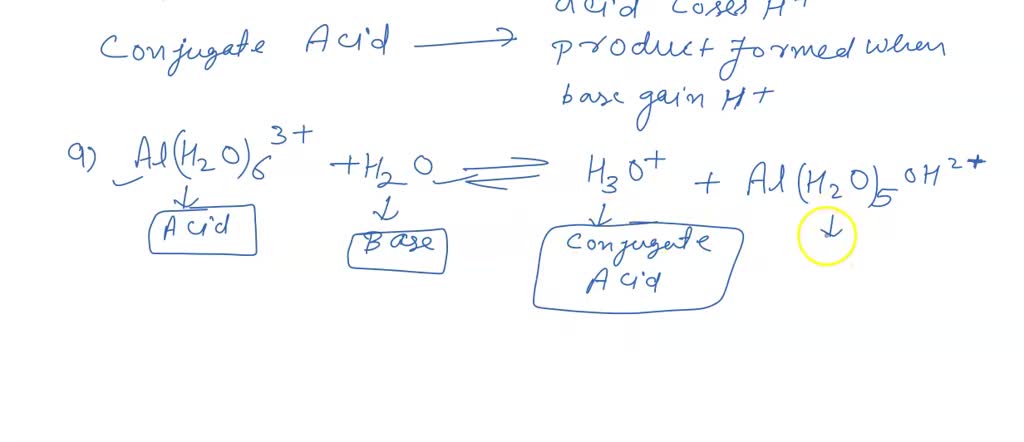 acid loses H+
Conjugate Acid → product formed when
base gain H+
a) Al(H₂O)₆³⁺ + H₂O ⇌ H₃O⁺ + Al(H₂O)₅OH²⁺
↓ ↓ ↓ ↓
Acid Base Conjugate
Acid